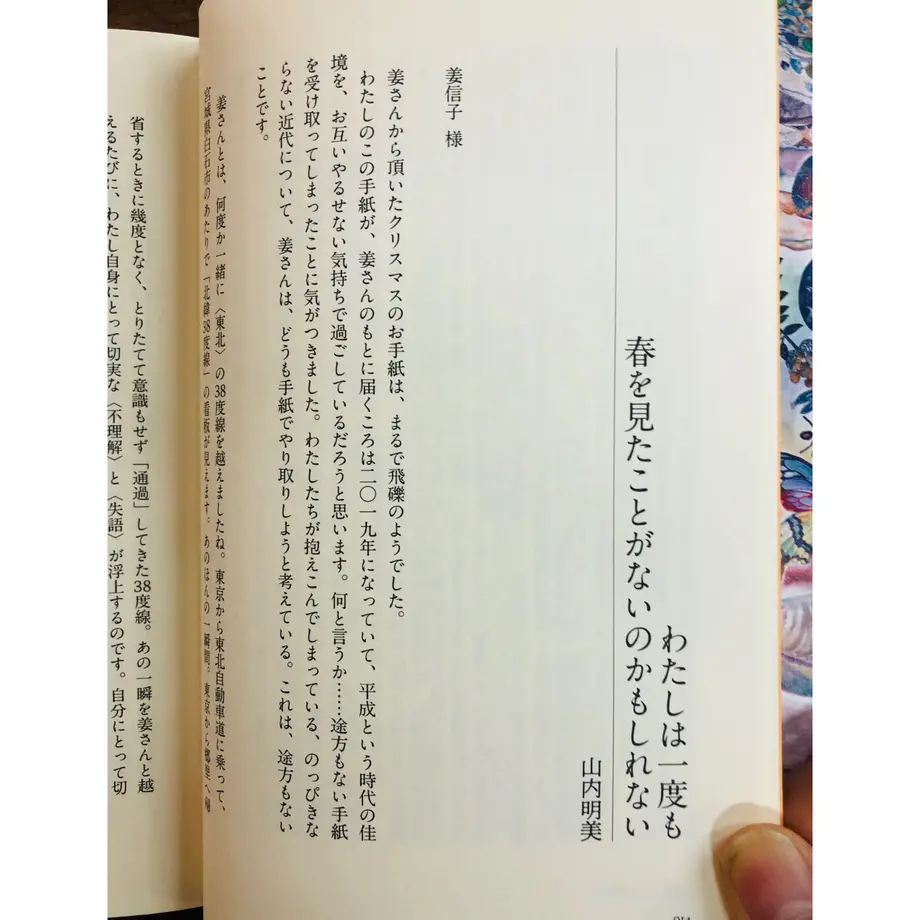 わたしは一度も
春を見たことがないのかもしれない
山内明美
姜信子 様
姜さんから頂いたクリスマスのお手紙は、まるで飛礫のようでした。
わたしのこの手紙が、姜さんのもとに届くころは二〇一九年になっていて、平成という時代の佳
境を、お互いやるせない気持ちで過ごしているだろうと思います。何と言うか……途方もない手紙
を受け取ってしまったことに気がつきました。わたしたちが抱えこんでしまっている、のっぴきな
らない近代について、姜さんは、どうも手紙でやり取りしようと考えている。これは、途方もない
ことです。
姜さんとは、何度か一緒に〈東北〉の38度線を越えましたね。東京から東北自動車道に乗って、
宮城県白石市のあたりで「北緯38度線」の看板が見えます。あのほんの一瞬間。東京から郷里へ帰
省するときに幾度となく、とりたてて意識もせず「通過」してきた38度線。あの一瞬を姜さんと越
えるたびに、わたし自身にとって切実な〈不理解〉と〈失語〉が浮上するのです。自分にとって切